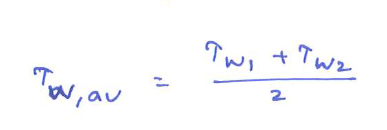 T_{w,av} = \frac{T_{w1} + T_{w2}}{2}